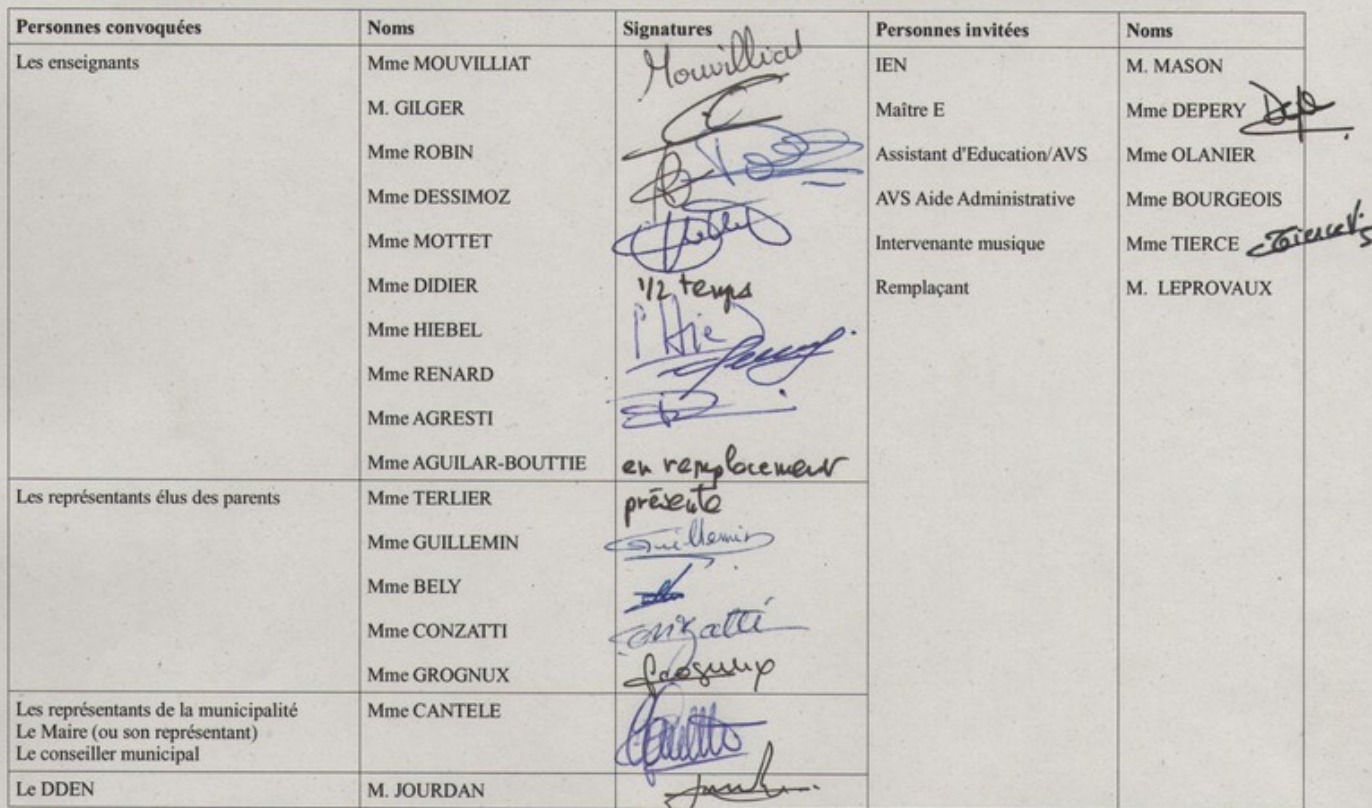 Personnes convoquées Noms Signatures Personnes invitées Noms
Les enseignants Mme MOUVILLIAT Mouvilliat IEN M. MASON
M. GILGER Maître E Mme DEPERY
Mme ROBIN Assistant d'Education/AVS Mme OLANIER
Mme DESSIMOZ AVS Aide Administrative Mme BOURGEOIS
Mme MOTTET Intervenante musique Mme TIERCE
Mme DIDIER 1/2 temps Remplaçant M. LEPROVAUX
Mme HIEBEL
Mme RENARD
Mme AGRESTI
Mme AGUILAR-BOUTTIE en remplacement
Les représentants élus des parents Mme TERLIER présente
Mme GUILLEMIN Guillemin
Mme BELY
Mme CONZATTI Conzatti
Mme GROGNUX Grognux
Les représentants de la municipalité Mme CANTELE
Le Maire (ou son représentant)
Le conseiller municipal
Le DDEN M. JOURDAN